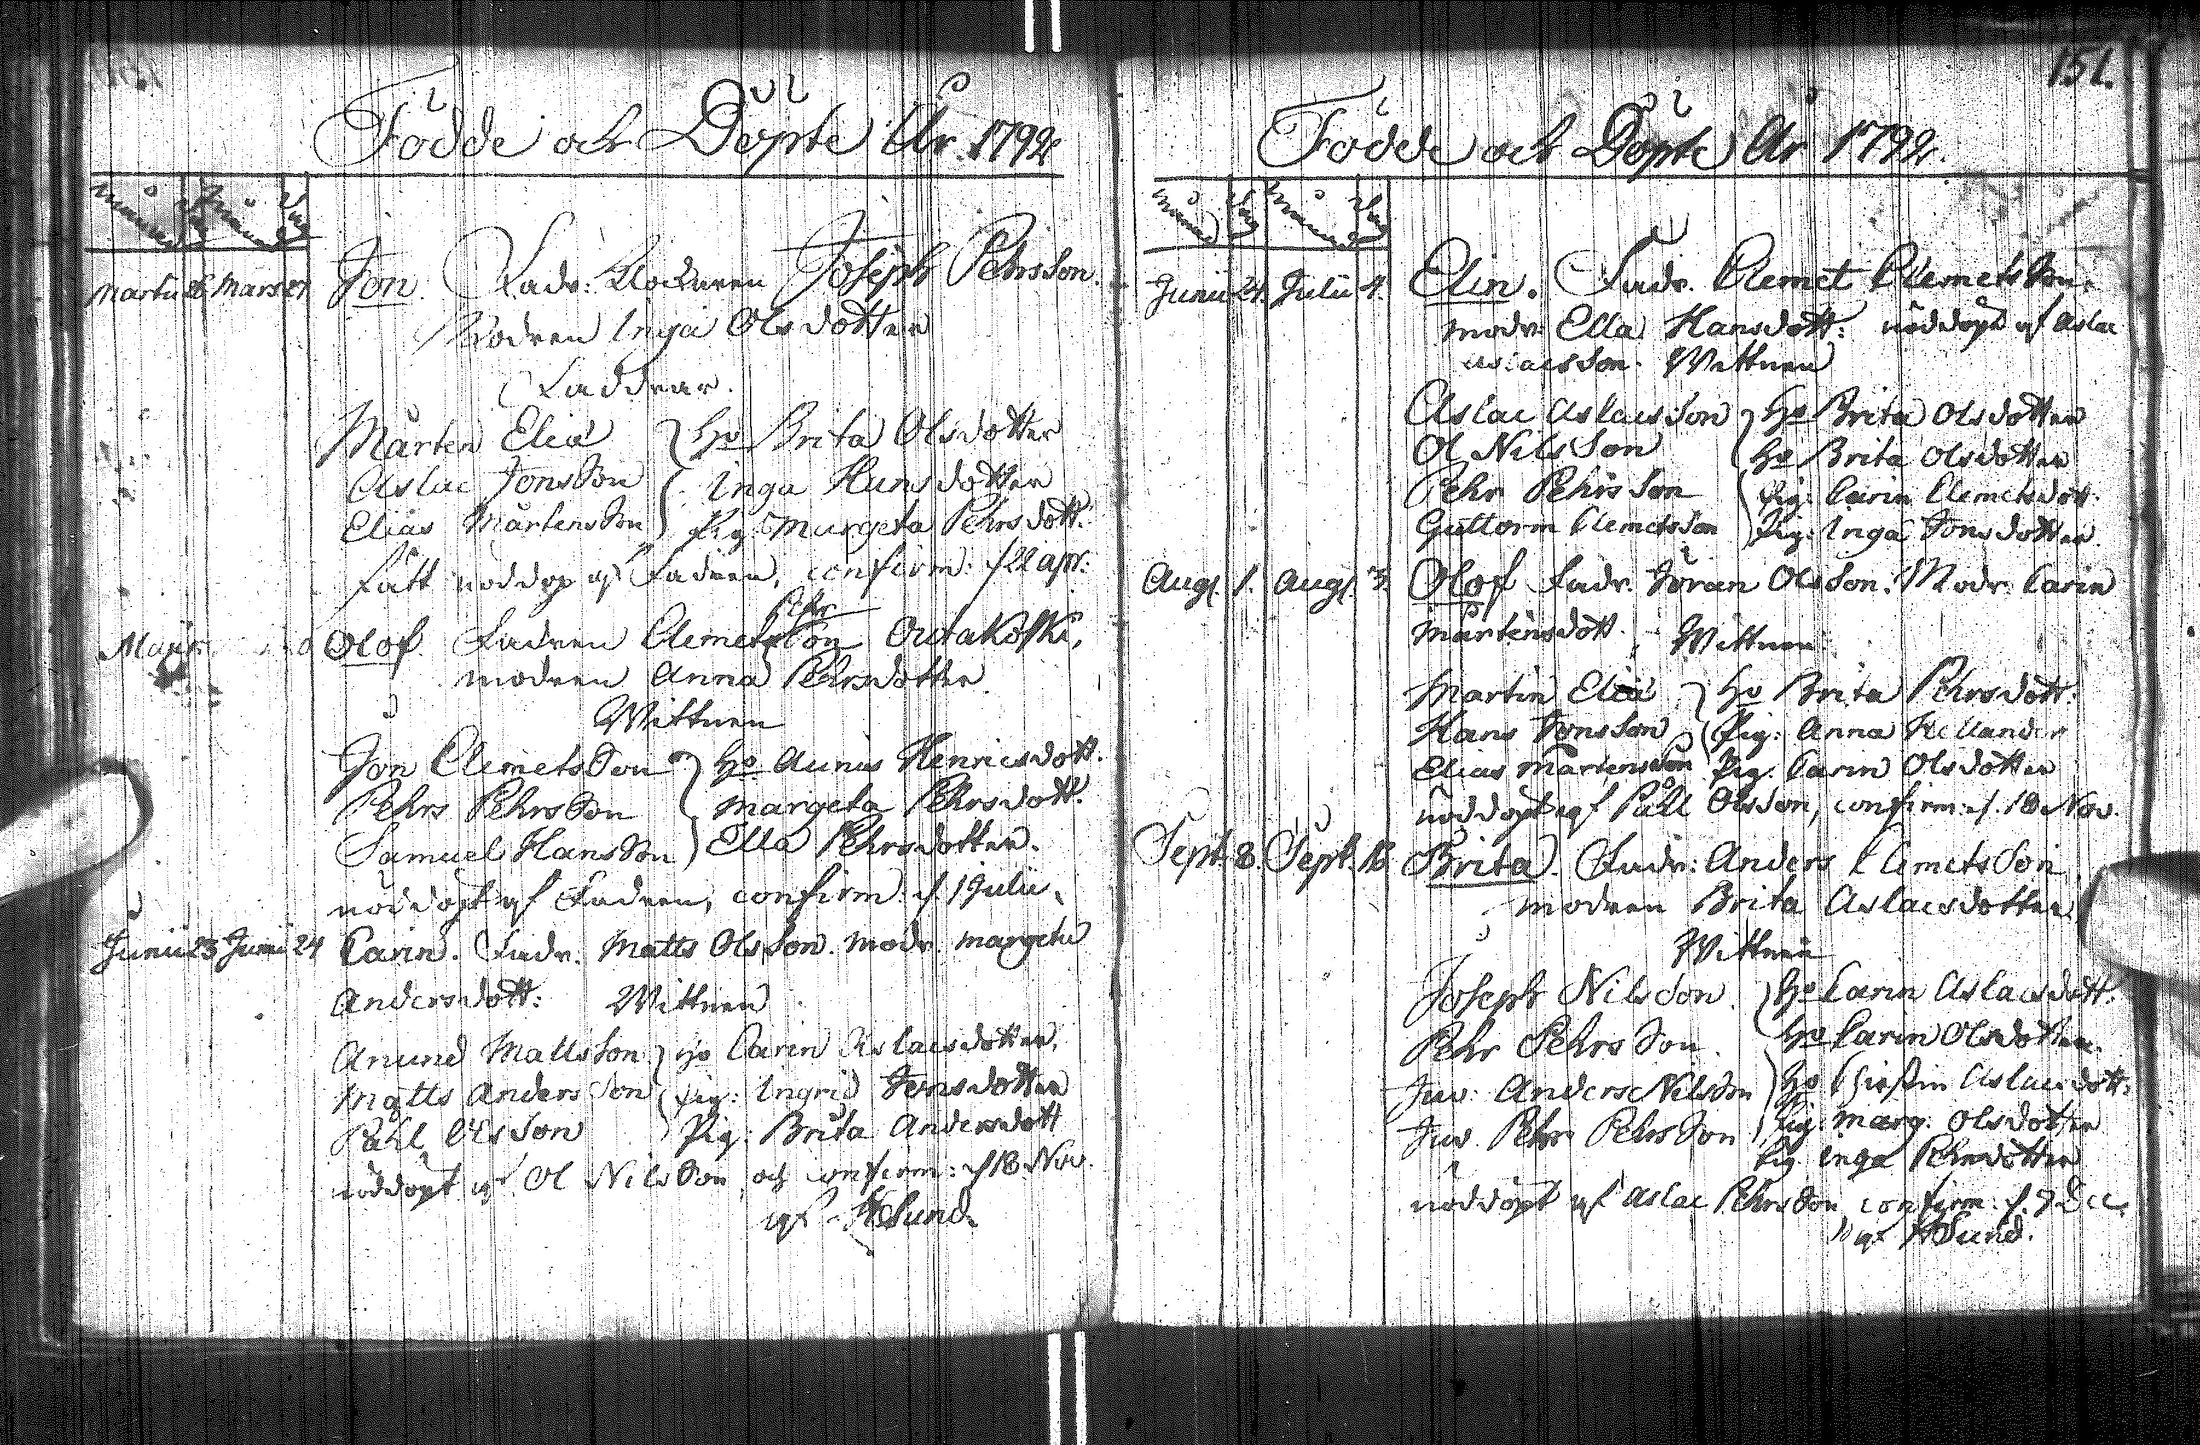 Födde och Döpte År 1792
Månad Dag Månad Dag
Martii 26 Mars 27 Jon. Fadr: Klockaren Joseph Pehrsson.
Modren Inga Olsdotter
Faddrar.
Mårten Elia Ho Brita Olsdotter
Aslac Jonsson Inga Hansdotter
Elias Mårtensson Pig: Margeta Pehrsdott:
fått nöddop af Fadren, confirm: d. 22 apr:
Olof Fadren Clemet Pehrson Outakoski,
modren Anna Pehrsdotter
Wittnen
Jon Clemetsson Ho Aunus Henricsdott.
Pehrs Pehrsson Margeta Pehrsdott.
Samuel Hansson Ella Pehrsdotter.
nöddöpt af Fadren, confirm: d. 1 Julii,
Junii 23 Junii 24 Carin. Fadr. Matts Olsson. Modr. Margeta
Andersdott: Wittnen
Anund Mattsson Ho Carin Aslacsdotter,
Matts Andersson Pig: Ingrid Jonsdotter
Påhl Olsson Pig: Brita Andersdott
nöddöpt af Ol Nilsson och confirm: d 18 Nov.
af HSund.
151.
Födde och Döpte År 1792.
Månad Dag Månad Dag
Junii 24. Julii 1. Elin. Fadr. Clemet Clemetsson,
modr: Ella Hansdott: nöddöpt af Aslac
Aslacsson. Wittnen
Aslac Aslacsson Ho Brita Olsdotter
Ol Nilsson Ho Brita Olsdotter
Pehr Pehrsson Pig: Carin Clemetsdott.
Guttorm Clemetsson Pig: Inga Jonsdotter.
Aug. 1. Aug. 3. Olof Fadr. Jöran Olsson. Modr. Carin
Mårtensdott. Wittnen
Martin Elia Ho Brita Pehrsdott:
Hans Jonsson Pig: Anna Hellander
Elias Mårtensson Pig: Carin Olsdotter
nöddöpt af Påhl Olsson, confirm: d. 18 Nov.
Sept. 8. Sept. 16 Brita. Fadr: Anders Clemetsson
modren Brita Aslacsdotter
Wittnen
Joseph Nilsson. Ho Carin Aslacsdott:
Pehr Pehrsson. Ho Carin Olsdotter.
Juv: Anders Nilsson Ho Chirstin Aslacsdott:
Juv Pehr Pehrsson Pig: Marg. Olsdotter
Pig Inga Pehrsdotter
nöddöpt af Aslac Pehrsson confirm: d. 9 Dec.
af HSund.